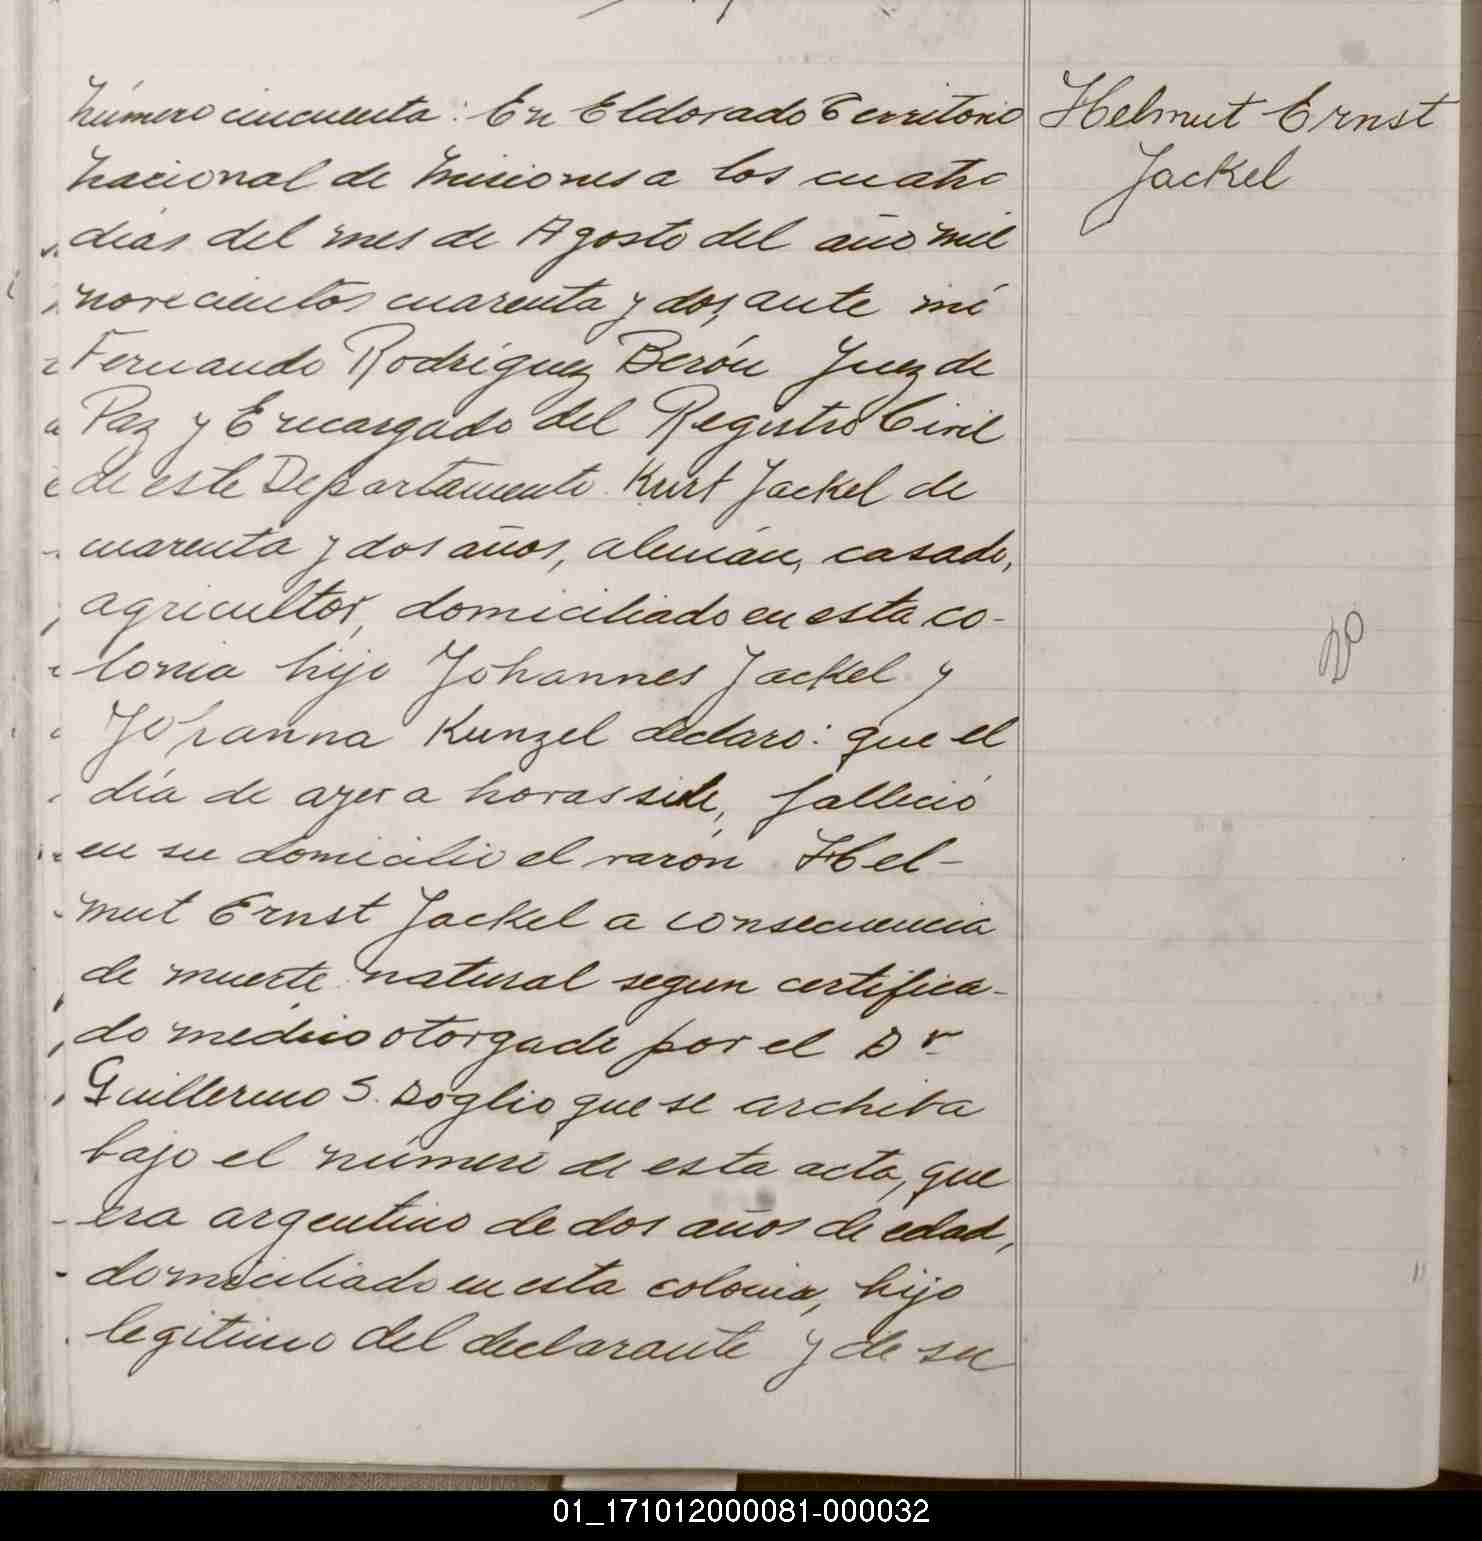 Número cincuenta: En Eldorado Territorio
Nacional de Misiones a los cuatro
días del mes de Agosto del año mil
novecientos cuarenta y dos, ante mí
Fernando Rodríguez Berón Juez de
Paz y Encargado del Registro Civil
de este Departamento. Kurt Jackel de
cuarenta y dos años, alemán, casado,
agricultor, domiciliado en esta co-
lonia hijo Johannes Jackel y
Johanna Kunzel declaro: que el
día de ayer a horas siete, falleció
en su domicilio el varón Hel-
mut Ernst Jackel a consecuencia
de muerte natural segun certifica-
do médico otorgado por el Dr.
Guillermo S. Doglio que se archiba
bajo el número de esta acta, que
era argentino de dos años de edad,
domiciliado en esta colonia, hijo
legitimo del declarante y de su
Helmut Ernst
Jackel
01_171012000081-000032